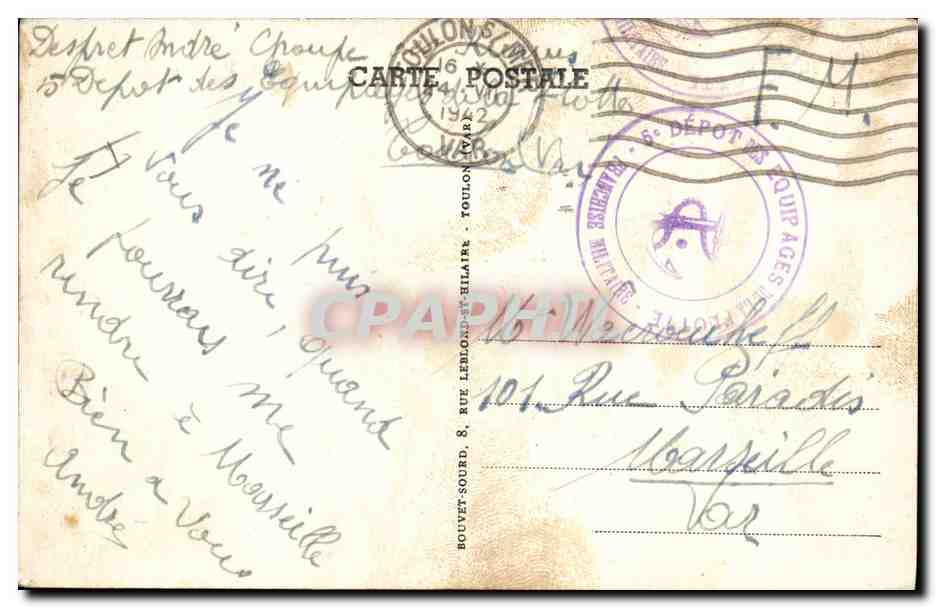 Despret André Groupe
5 Depot des Equipages de la Flotte
Toulon Var
CARTE POSTALE
TOULON S/MER
16 X
1942
VAR
F.M.
5e DÉPOT DES EQUIPAGES DE LA FLOTTE
FRANCHISE MILITAIRE
Je ne puis
Vous dire, quand
Je pourrais me
rendre à Marseille
Bien a Vous
André
BOUVET-SOURD, 8, RUE LEBLOND-ST-HILAIRE - TOULON (VAR)
CPAPHIL
101 Rue Paradis
Marseille
Var